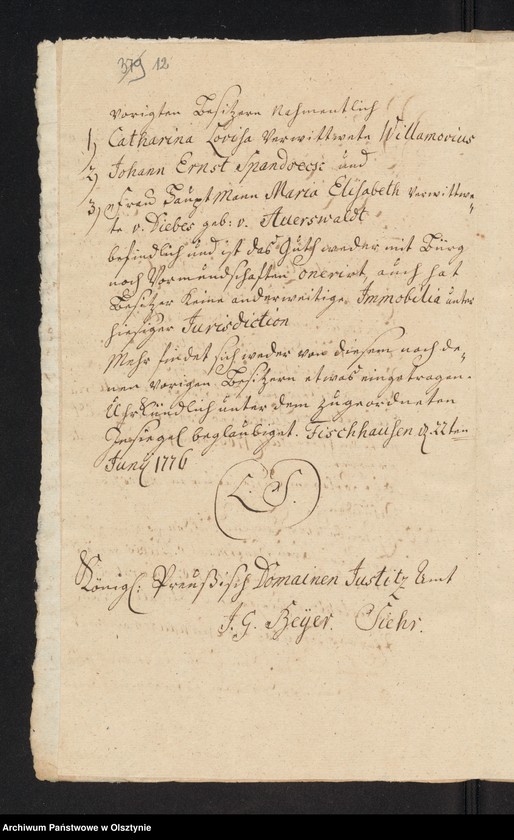 379 12
vorigten Besitzern Nahmentlich
1) Catharina Lovisa verwittwete Willamovius
2) Johann Ernst und
3) Frau Haupt Mann Maria Elisabeth verwittwe„
te v. Diebes geb: v. Auerswaldt
befindlich und ist das Guth weder mit Bürg
noch Vormundschaften onerirt, auch hat
Besitzer keine anderweitige Immobilia unter
hiesiger Jurisdiction
Mehr findet sich weder von diesem noch de„
nen vorigen Besitzern etwas eingetragen.
Uhrkundlich unter dem zugeordneten
Insiegel beglaubiget. Fischhausen d. 22ten
Juny 1776
L. S.
Königl: Preußisch Domainen Justitz Amt
J. G. Beÿer. Siehr.
Archiwum Państwowe w Olsztynie